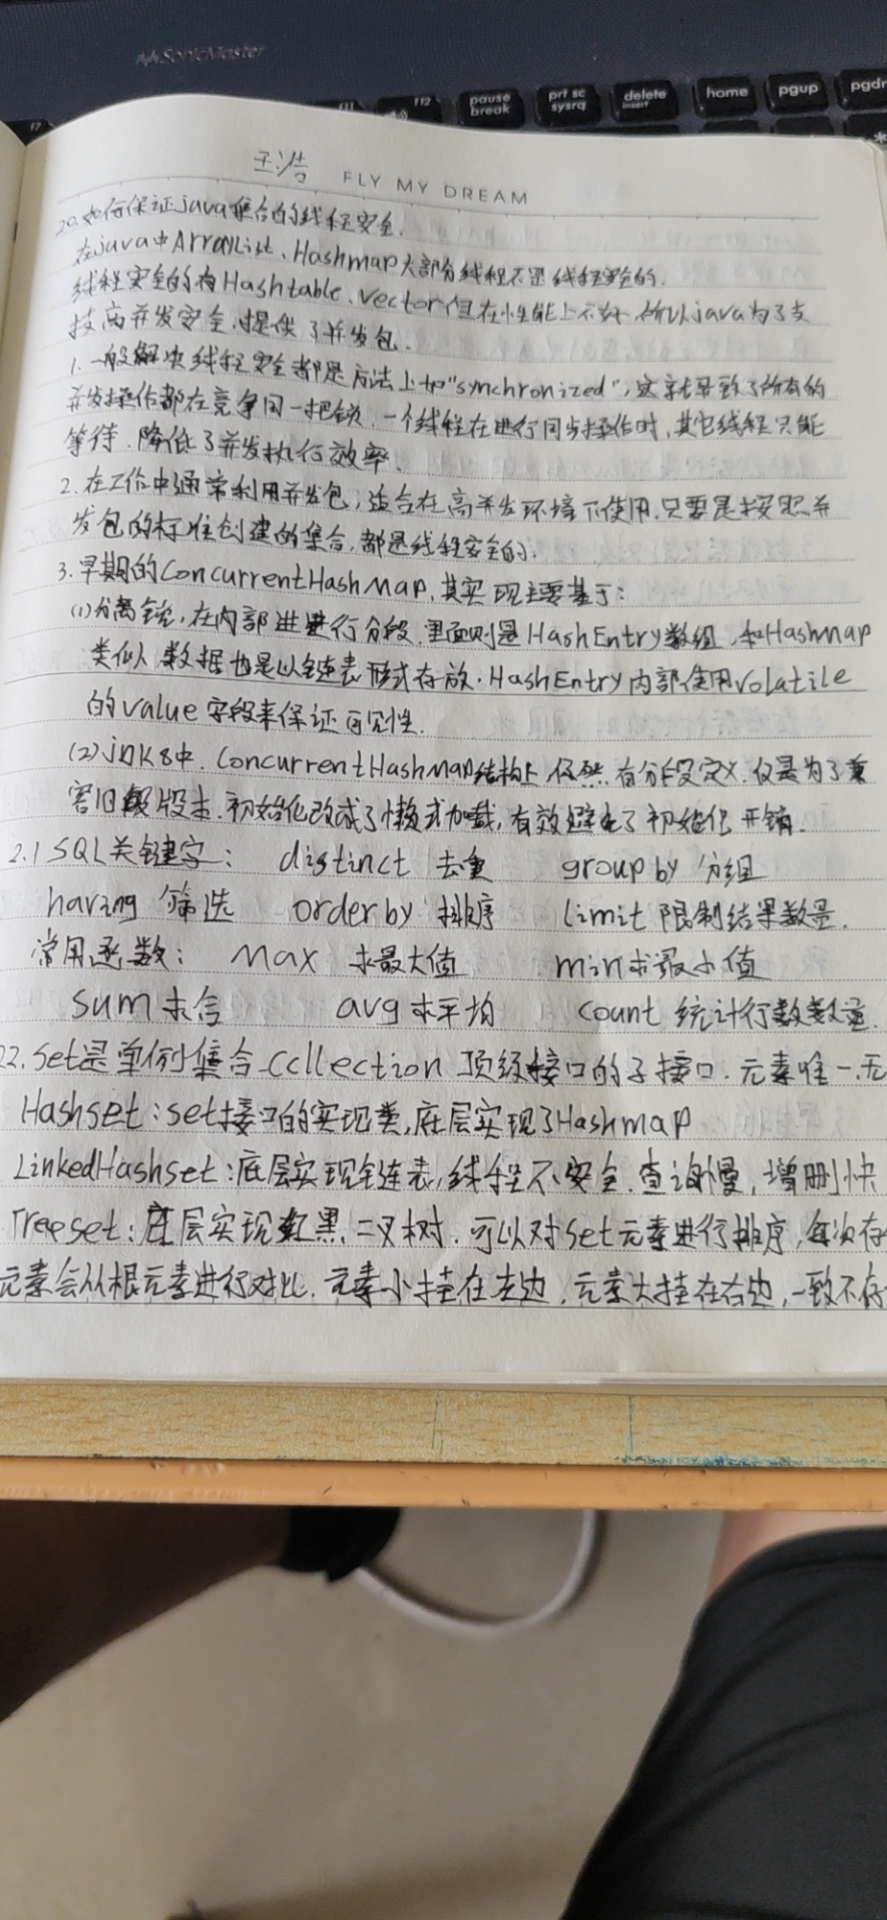 SonicMaster
f7
f11
f12
pause break
prt sc sysrq
delete insert
home
pgup
pgdn
*
王浩 FLY MY DREAM
20.如何保证java集合的线程安全.
在java中ArrayList、Hashmap大部分线程不是线程安全的.
线程安全的有Hashtable、vector但在性能上不好,所以java为了支
技高并发安全,提供了并发包.
1.一般解决线程安全都是方法上加"synchronized",这就导致了所有的
并发操作都在竞争同一把锁,一个线程在进行同步操作时,其它线程只能
等待.降低了并发执行效率.
2.在工作中通常利用并发包,适合在高并发环境下使用.只要是按照并
发包的标准创建的集合,都是线程安全的.
3.早期的ConcurrentHashMap,其实现主要基于:
(1)分离锁,在内部进行分段,里面则是HashEntry数组,和Hashmap
类似,数据也是以链表形式存放.HashEntry内部使用volatile
的value字段来保证可见性.
(2)jdk8中,ConcurrentHashMap结构上仍然有分段定义,仅是为了兼
容旧版本.初始化改成了懒式加载,有效避免了初始化开销.
2.1 SQL关键字: distinct 去重 group by 分组
having 筛选 order by 排序 limit 限制结果数量.
常用函数: Max 求最大值 min求最小值
sum求合 avg求平均 count 统计行数数量.
22.Set是单例集合Collection 顶级接口的子接口.元素唯一.无
Hashset:set接口的实现类,底层实现了Hashmap
LinkedHashset:底层实现链表,线程不安全.查询慢,增删快
Treeset:底层实现红黑二叉树.可以对set元素进行排序,每次存
元素会从根元素进行对比.元素小挂在左边,元素大挂在右边,一致不存